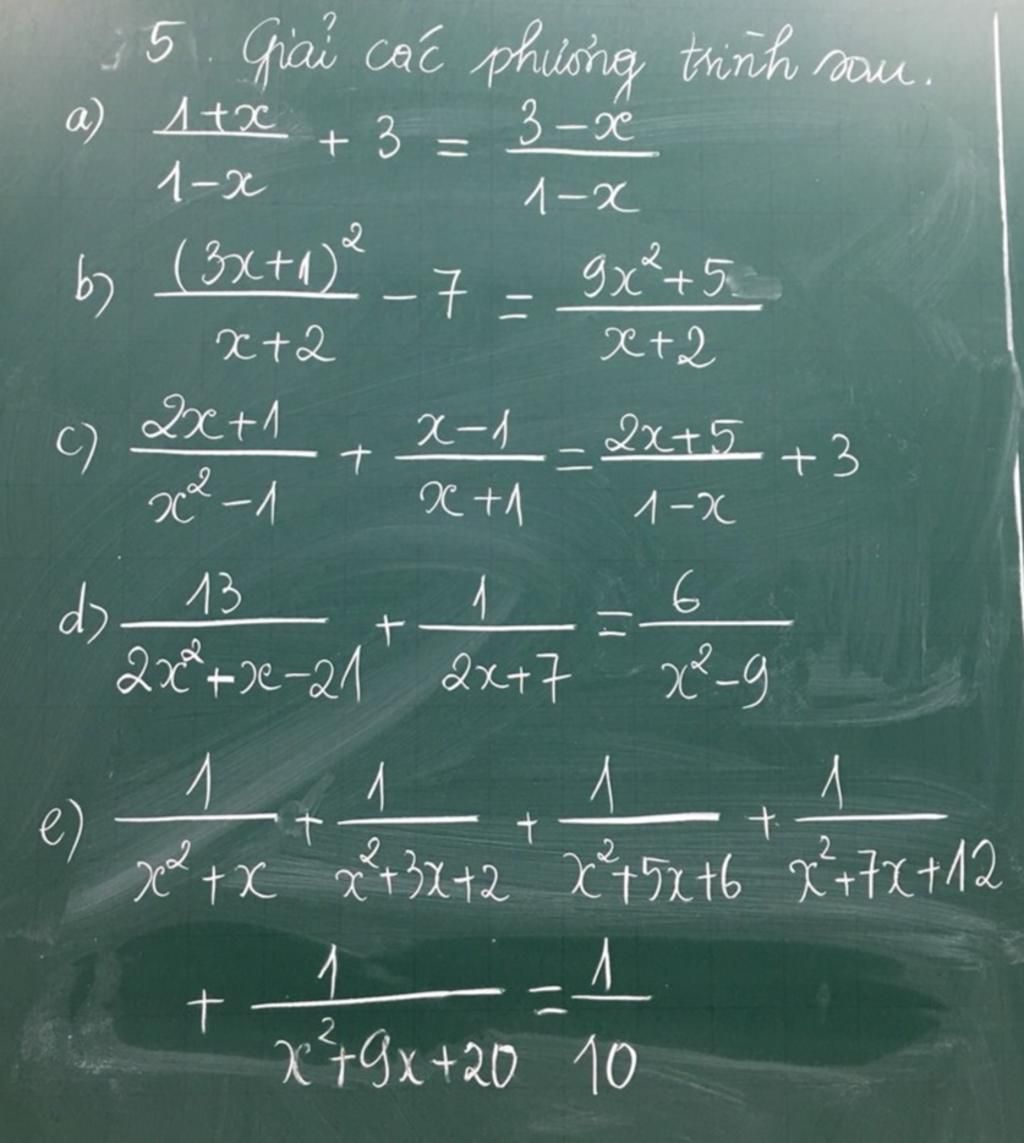 5. Giải các phương trình sau.
a) \frac{1+x}{1-x} + 3 = \frac{3-x}{1-x}
b) \frac{(3x+1)^2}{x+2} - 7 = \frac{9x^2+5}{x+2}
c) \frac{2x+1}{x^2-1} + \frac{x-1}{x+1} = \frac{2x+5}{1-x} + 3
d) \frac{13}{2x^2+x-21} + \frac{1}{2x+7} = \frac{6}{x^2-9}
e) \frac{1}{x^2+x} + \frac{1}{x^2+3x+2} + \frac{1}{x^2+5x+6} + \frac{1}{x^2+7x+12}
+ \frac{1}{x^2+9x+20} = \frac{1}{10}